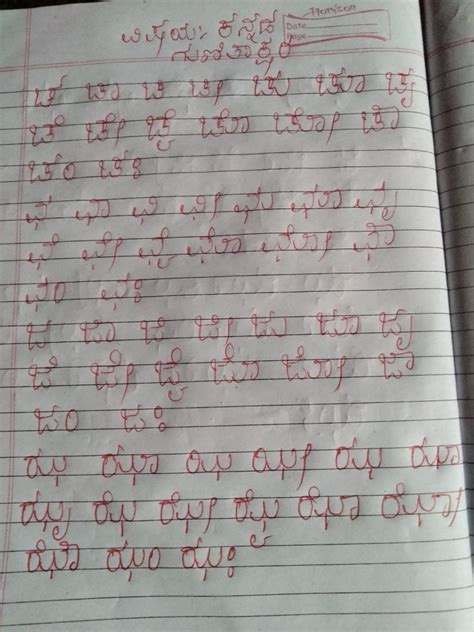 Premizon
ವಿಷಯ: ಕನ್ನಡ
Date
Page
ಗುಣಿತಾಕ್ಷರ
ಚ ಚಾ ಚಿ ಚೀ ಚು ಚೂ ಚೃ
ಚೆ ಚೇ ಚೈ ಚೊ ಚೋ ಚೌ
ಚಂ ಚಃ
ಛ ಛಾ ಛಿ ಛೀ ಛು ಛೂ ಛೃ
ಛೆ ಛೇ ಛೈ ಛೊ ಛೋ ಛೌ
ಛಂ ಛಃ
ಜ ಜಾ ಜಿ ಜೀ ಜು ಜೂ ಜೃ
ಜೆ ಜೇ ಜೈ ಜೊ ಜೋ ಜೌ
ಜಂ ಜಃ
ಝ ಝಾ ಝಿ ಝೀ ಝು ಝೂ
ಝೃ ಝೆ ಝೇ ಝೈ ಝೊ ಝೋ
ಝೌ ಝಂ ಝಃ